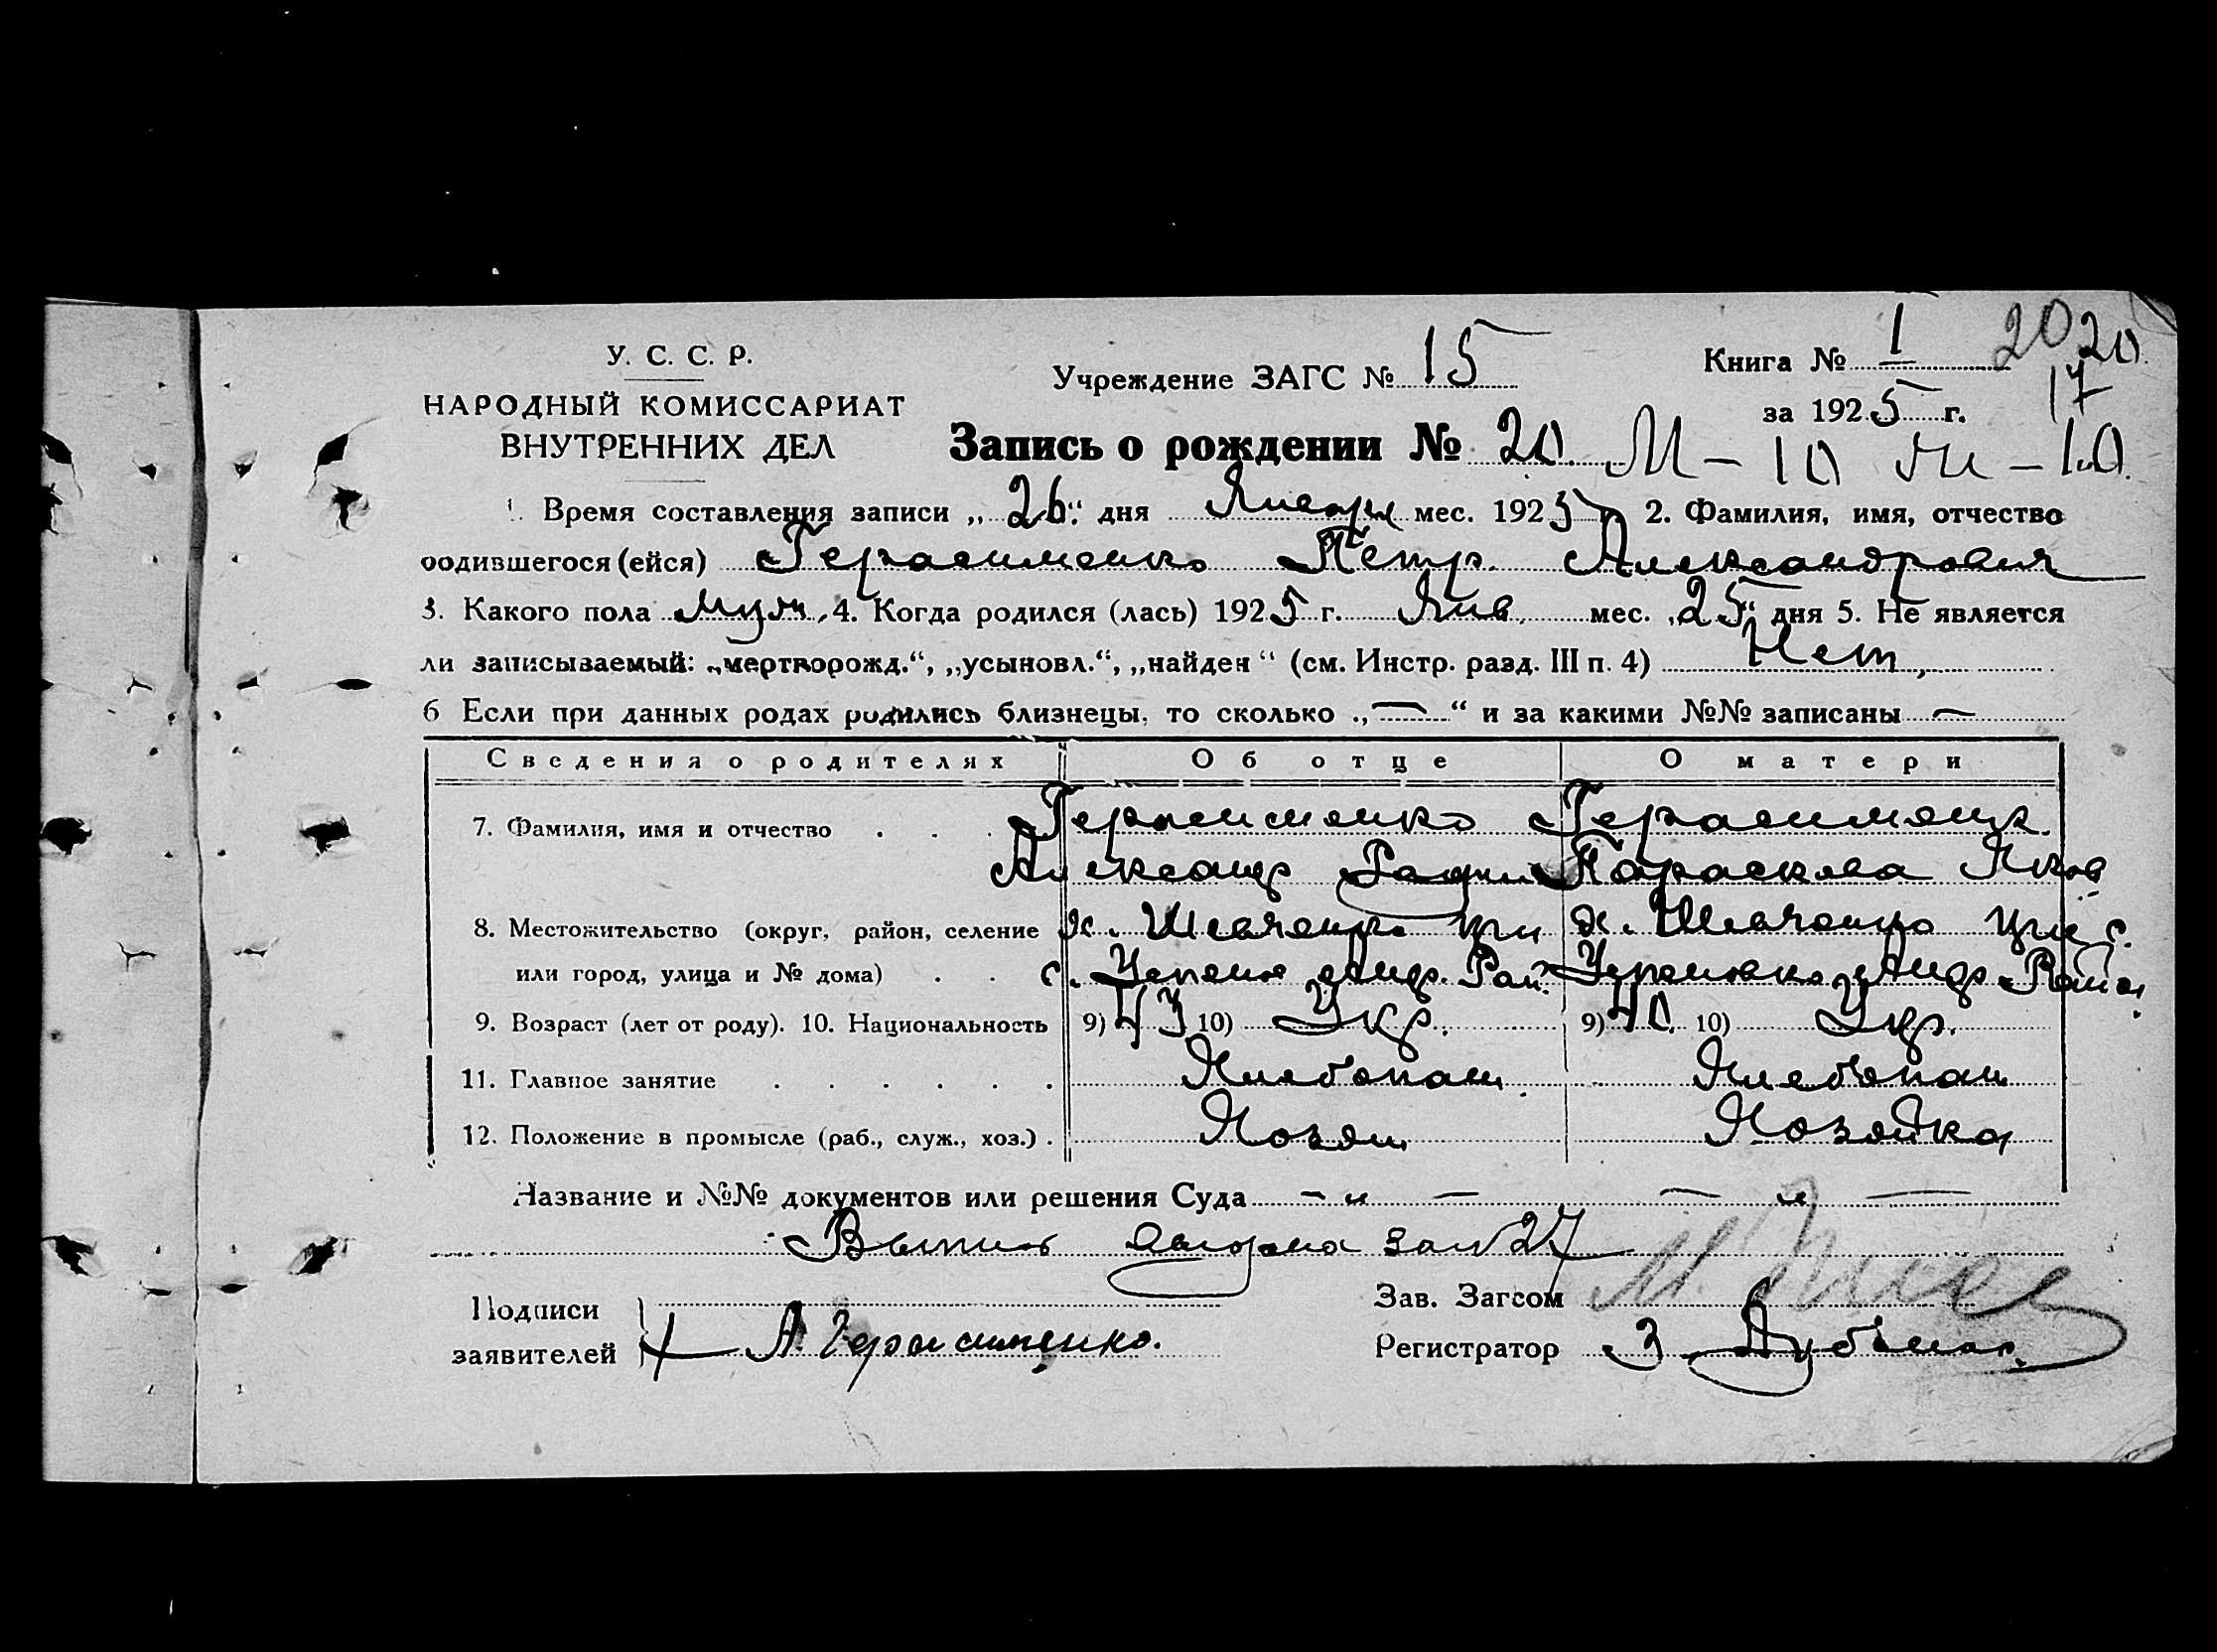 У. С. С. Р.
НАРОДНЫЙ КОМИССАРИАТ
ВНУТРЕННИХ ДЕЛ
Учреждение ЗАГС № 15
Книга № I 20 20
за 1925 г. 17
Запись о рождении № 20 М – 10 – 10
1. Время составления записи „26“ дня Января мес. 1925 г. 2. Фамилия, имя, отчество
родившегося (ейся) Герасименко Петр Александрович
3. Какого пола муж. 4. Когда родился (лась) 1925 г. Янв. мес. „25“ дня 5. Не является
ли записываемый: „мертворожд.“, „усыновл.“, „найден“ (см. Инстр. разд. III п. 4) Нет
6 Если при данных родах родились близнецы, то сколько „—“ и за какими №№ записаны —
Сведения о родителях Об отце О матери
7. Фамилия, имя и отчество . . . Герасименко Герасименк.
Александр Параскева Яков
8. Местожительство (округ, район, селение х. Шевченко при х. Шевченко при с.
или город, улица и № дома) . . с. Успено Андр. Рай. Успеновка Андр. Района
9. Возраст (лет от роду). 10. Национальность 9) 43 10) Укр. 9) 40 10) Укр.
11. Главное занятие . . . . . . Хлебопаш. Хлебопаш
12. Положение в промысле (раб., служ., хоз.) . Хозяин Хозяйка
Название и №№ документов или решения Суда – „ — — „ —
Выпись выдана за № 27
Подписи
заявителей А. Герасименко.
Зав. Загсом
Регистратор З